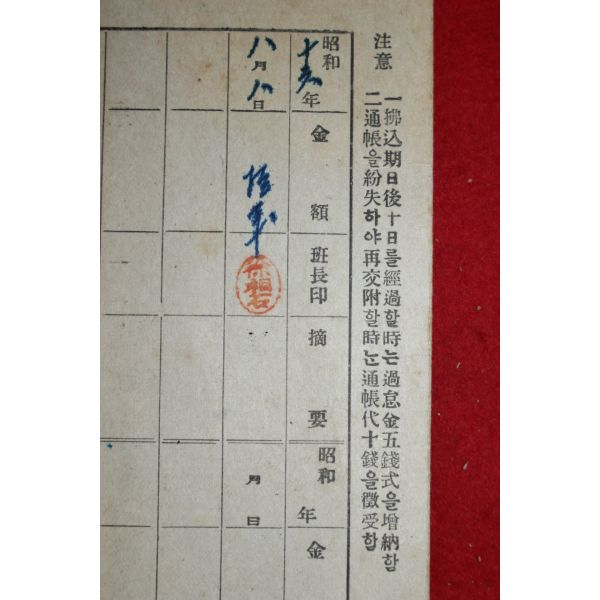 注意
一 拂込期日後十日를經過할時는過怠金五錢式을增納함
二 通帳을紛失하야再交附할時는通帳代十錢을徵受함
昭和 年 金額 班長印 摘要
八月八日
昭和 年 金
月 日